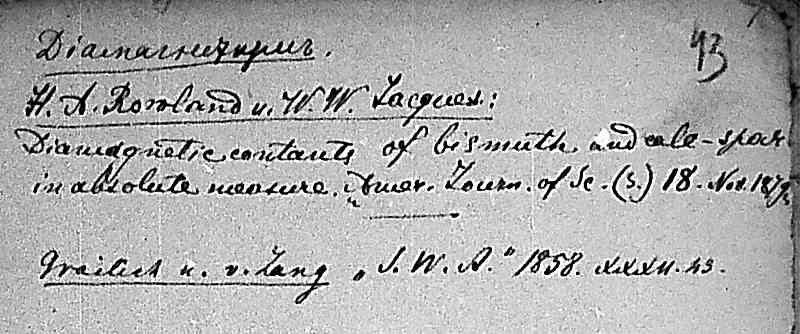 Діамагнетизмъ.
43
H. A. Rowland u. W. W. Jacques:
Diamagnetic contants of bismuth and calc-spar
in absolute measure. „Amer. Journ. of Sc. (3.) 18. Nov. 1879“
Grailich u. v. Lang „S. W. A.“ 1858. XXXII. 43.